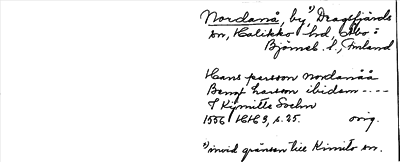 Nordanå, by,¹) Dragsfjärds
sn, Halikko hd, Åbo o
Björneb. l., Finland
Hans persson nordanåå
Bengt larson ibidem ----
I Kijmitte Sochn
1556 HH 3, s. 25. orig.
¹) invid gränsen till Kimito sn.